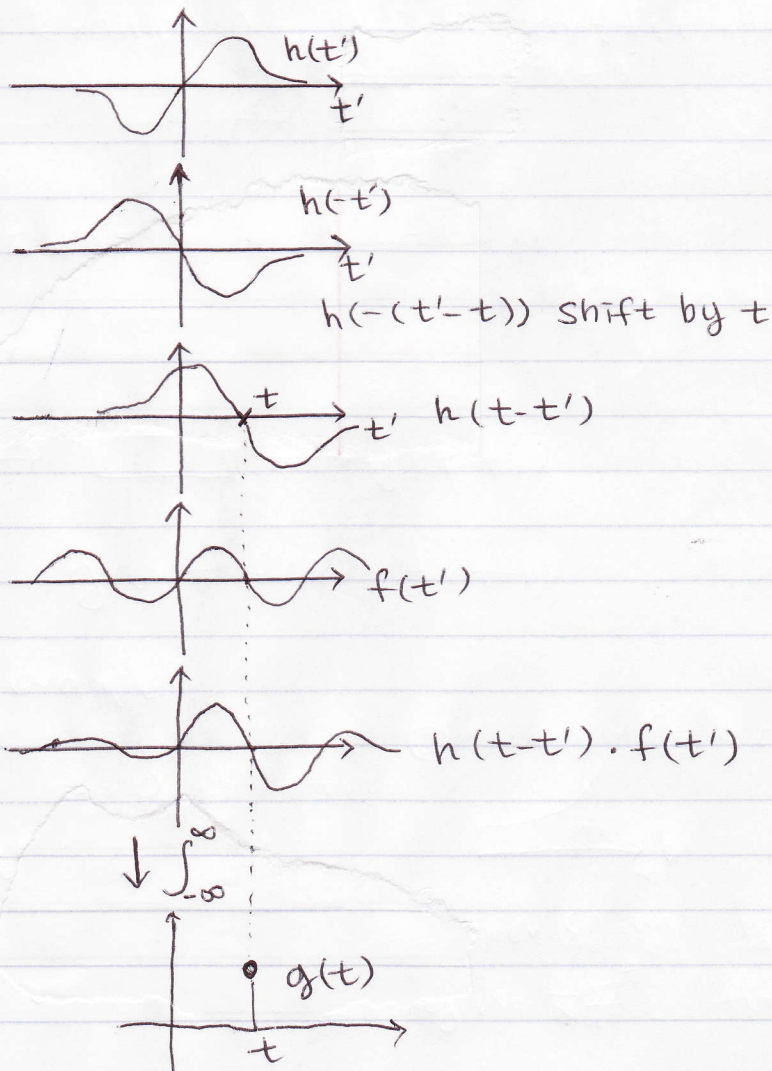 h(t')
t'
h(-t')
t'
h(-(t'-t)) shift by t
t
t' h(t-t')
f(t')
h(t-t')·f(t')
↓ ∫_{-∞}^{∞}
g(t)
t